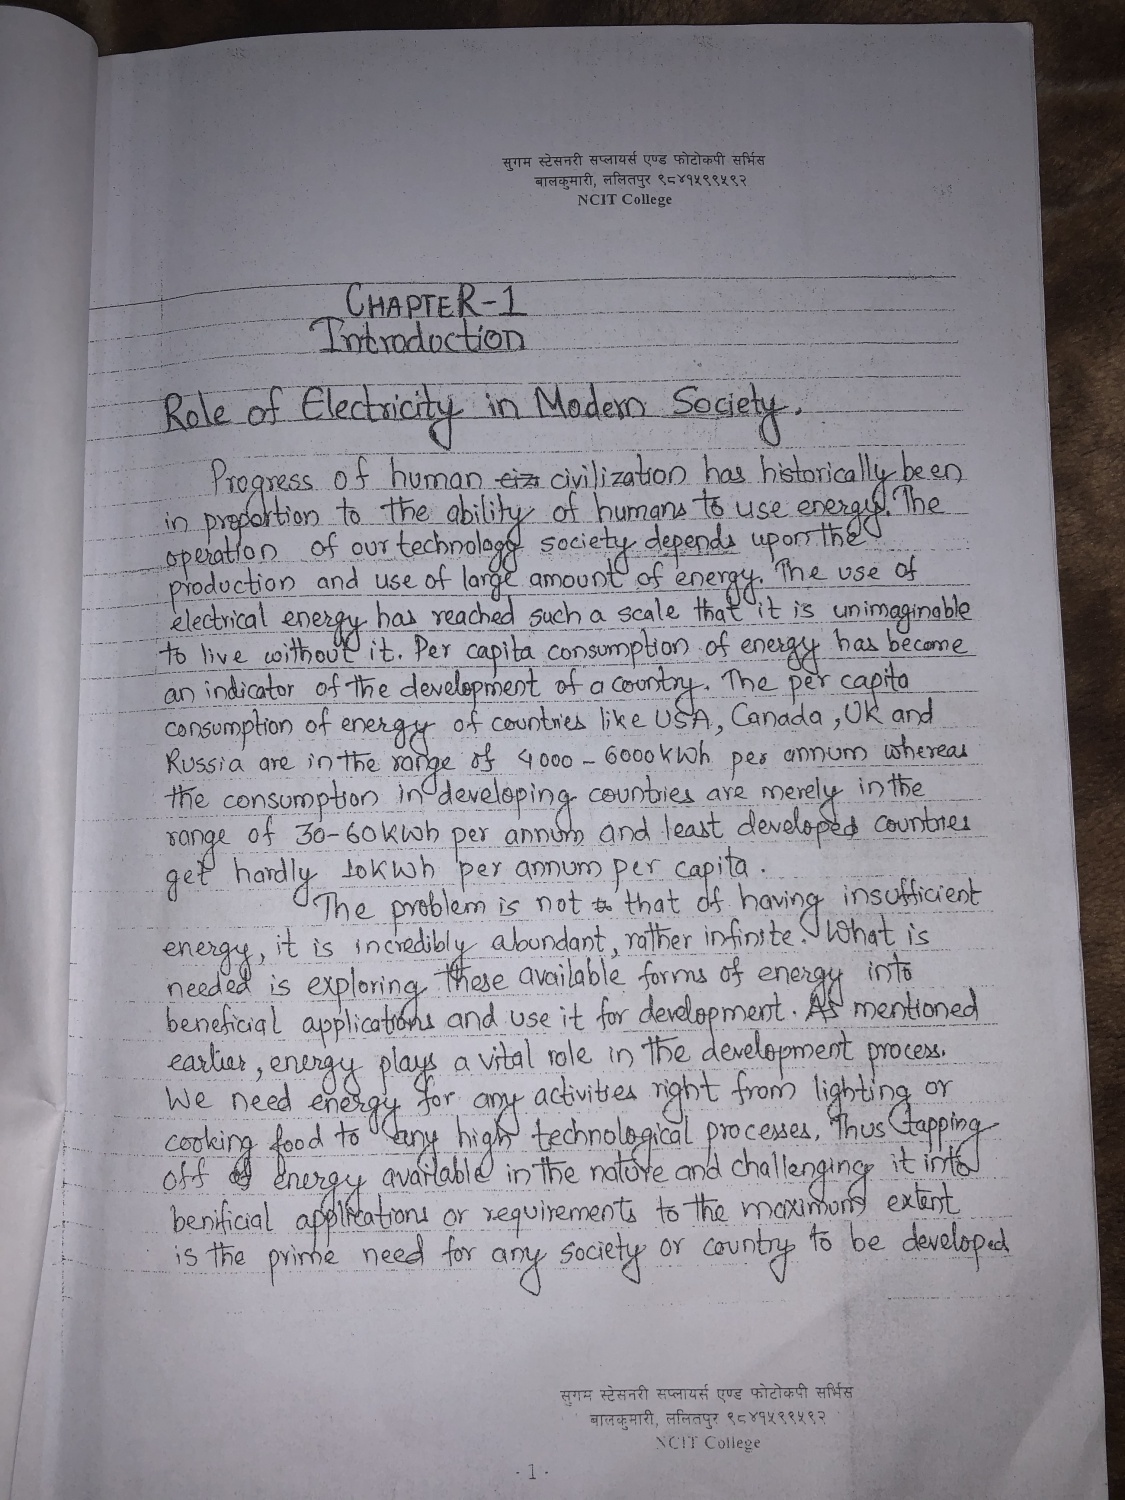 सुगम स्टेसनरी सप्लायर्स एण्ड फोटोकपी सर्भिस
बालकुमारी, ललितपुर ९८४१५९९५९२
NCIT College
CHAPTER-1
Introduction
Role of Electricity in Modern Society.
Progress of human civilization has historically been
in proportion to the ability of humans to use energy. The
operation of our technology society depends upon the
production and use of large amount of energy. The use of
electrical energy has reached such a scale that it is unimaginable
to live without it. Per capita consumption of energy has become
an indicator of the development of a country. The per capita
consumption of energy of countries like USA, Canada, UK and
Russia are in the range of 4000 - 6000 kWh per annum whereas
the consumption in developing countries are merely in the
range of 30-60 kWh per annum and least developed countries
get hardly 10kWh per annum per capita.
The problem is not that of having insufficient
energy, it is incredibly abundant, rather infinite. What is
needed is exploring these available forms of energy into
beneficial applications and use it for development. As mentioned
earlier, energy plays a vital role in the development process.
We need energy for any activities right from lighting or
cooking food to any high technological processes. Thus tapping
off energy available in the nature and challenging it into
benificial applications or requirements to the maximum extent
is the prime need for any society or country to be developed
सुगम स्टेसनरी सप्लायर्स एण्ड फोटोकपी सर्भिस
बालकुमारी, ललितपुर ९८४१५९९५९२
NCIT College
- 1 -